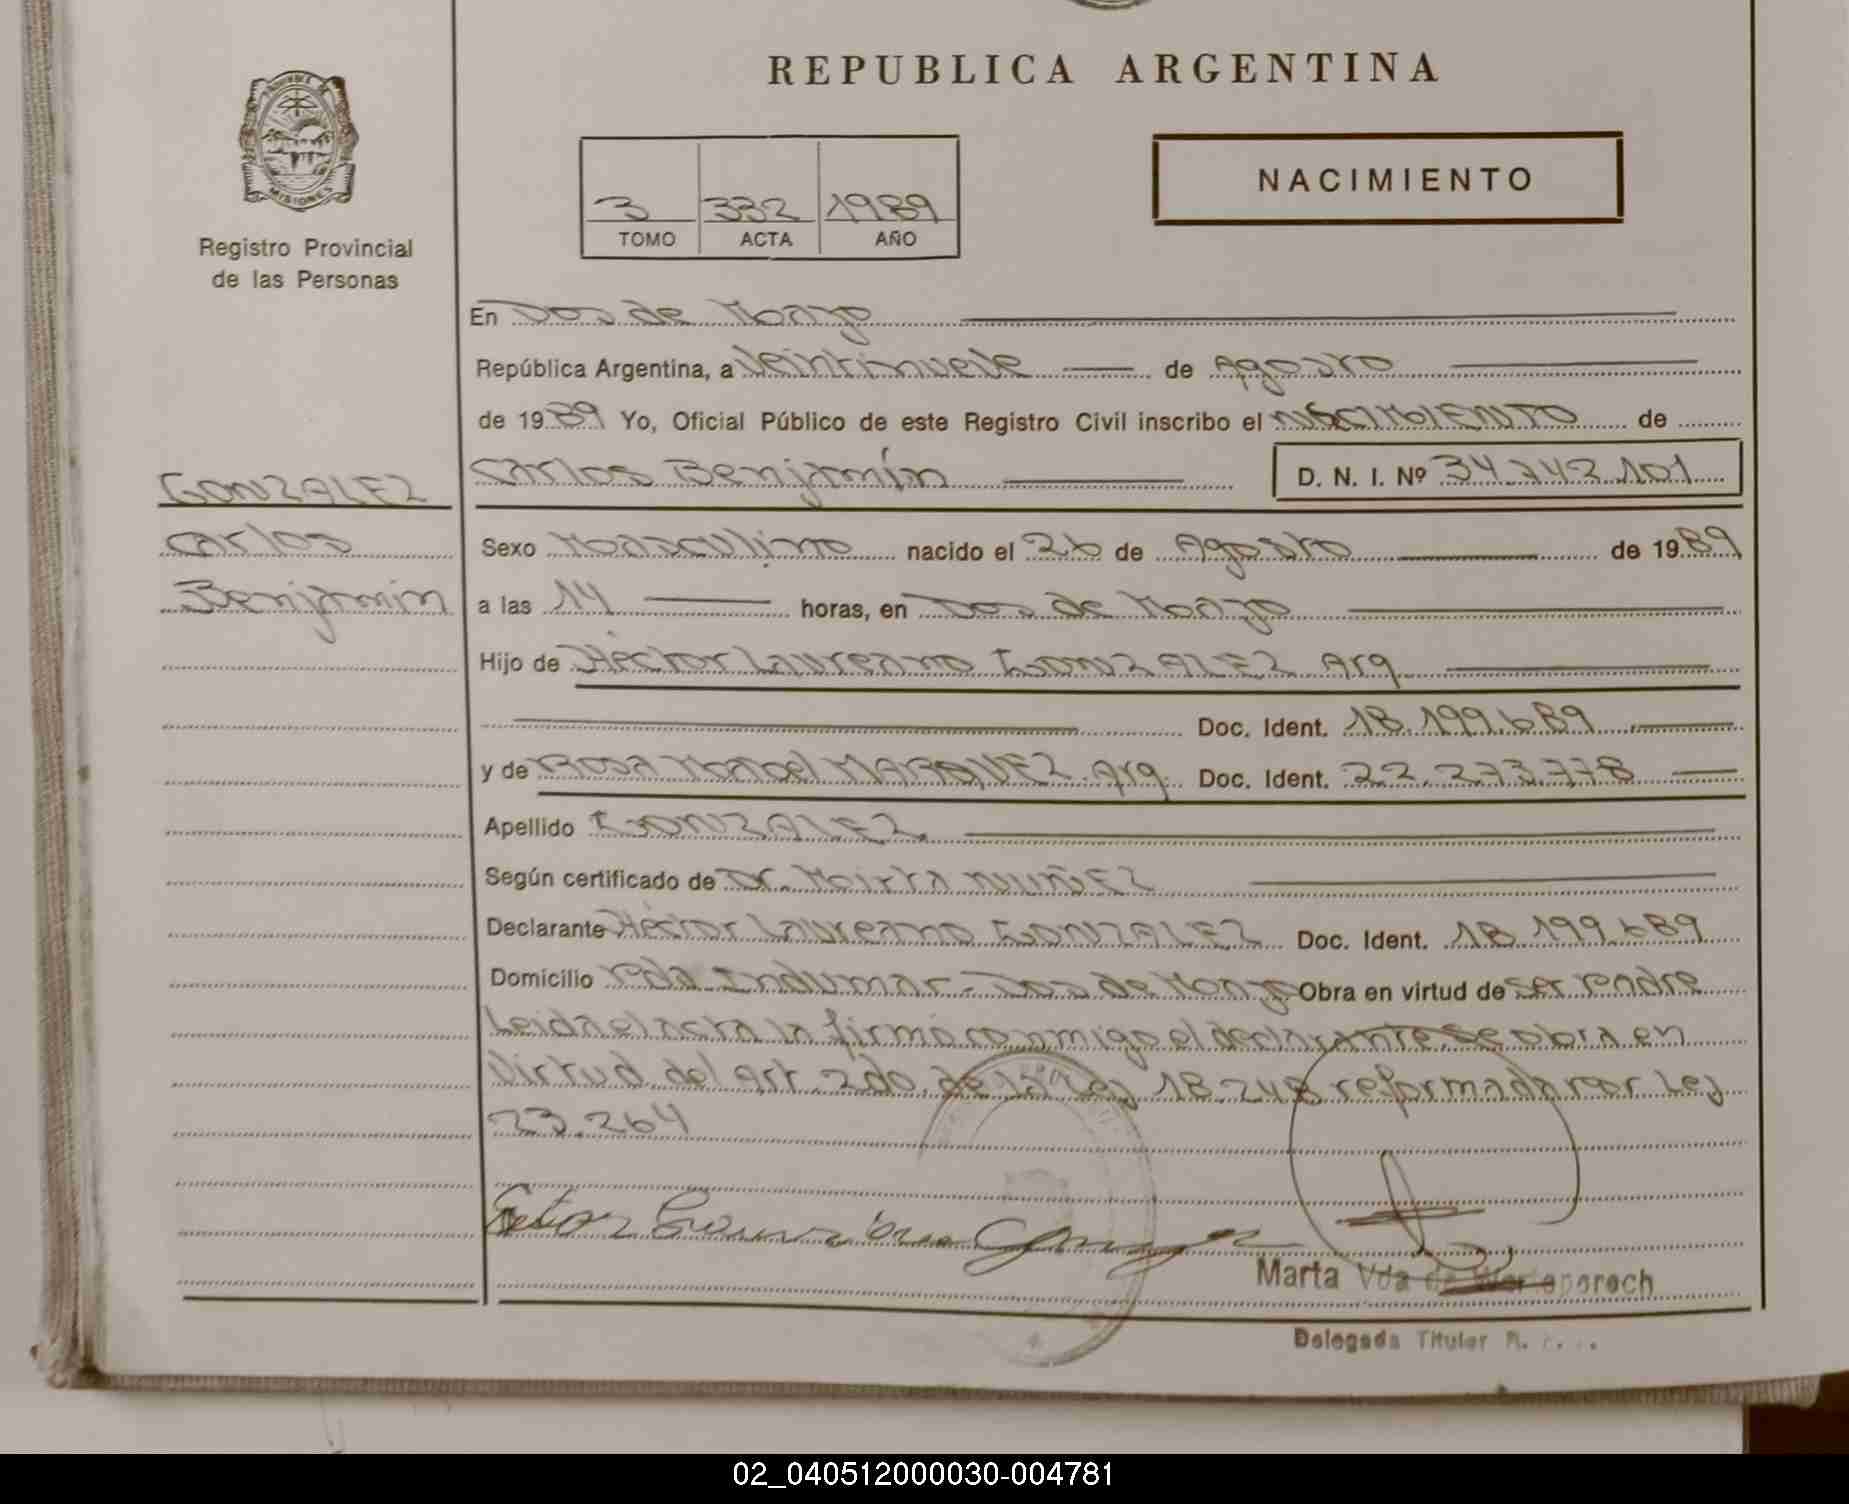 REPUBLICA ARGENTINA
MISIONES
Registro Provincial
de las Personas
3 332 1989
TOMO ACTA AÑO
NACIMIENTO
En Dos de Mayo
República Argentina, a Veintinueve de Agosto
de 1989 Yo, Oficial Público de este Registro Civil inscribo el NACIMIENTO de
Carlos Benjamín D. N. I. Nº 34.742.101
GONZALEZ
Carlos
Benjamin
Sexo Masculino nacido el 26 de Agosto de 1989
a las 14 horas, en Dos de Mayo
Hijo de Héctor Laureano GONZALEZ Arg
Doc. Ident. 18.199.689
y de Rosa Mabel MARQUEZ. Arg. Doc. Ident. 22.273.778
Apellido GONZALEZ.
Según certificado de Dr. Mirta NUÑEZ
Declarante Héctor Laureano GONZALEZ Doc. Ident. 18.199.689
Domicilio Pda Indumar - Dos de Mayo Obra en virtud de ser Padre
Leida el acta la firma conmigo el declarante se obra en
Virtud del art. 2do. de la Ley 18.248 reformada por Ley
23.264
Marta Vda de
Delegada Titular R.
02_040512000030-004781